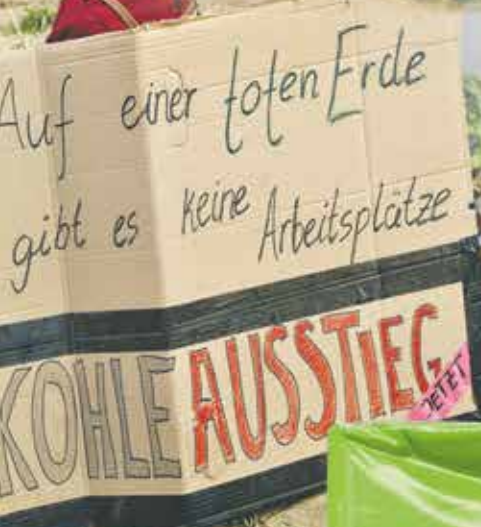 Auf einer toten Erde
gibt es keine Arbeitsplätze
KOHLE AUSSTIEG
JETZT